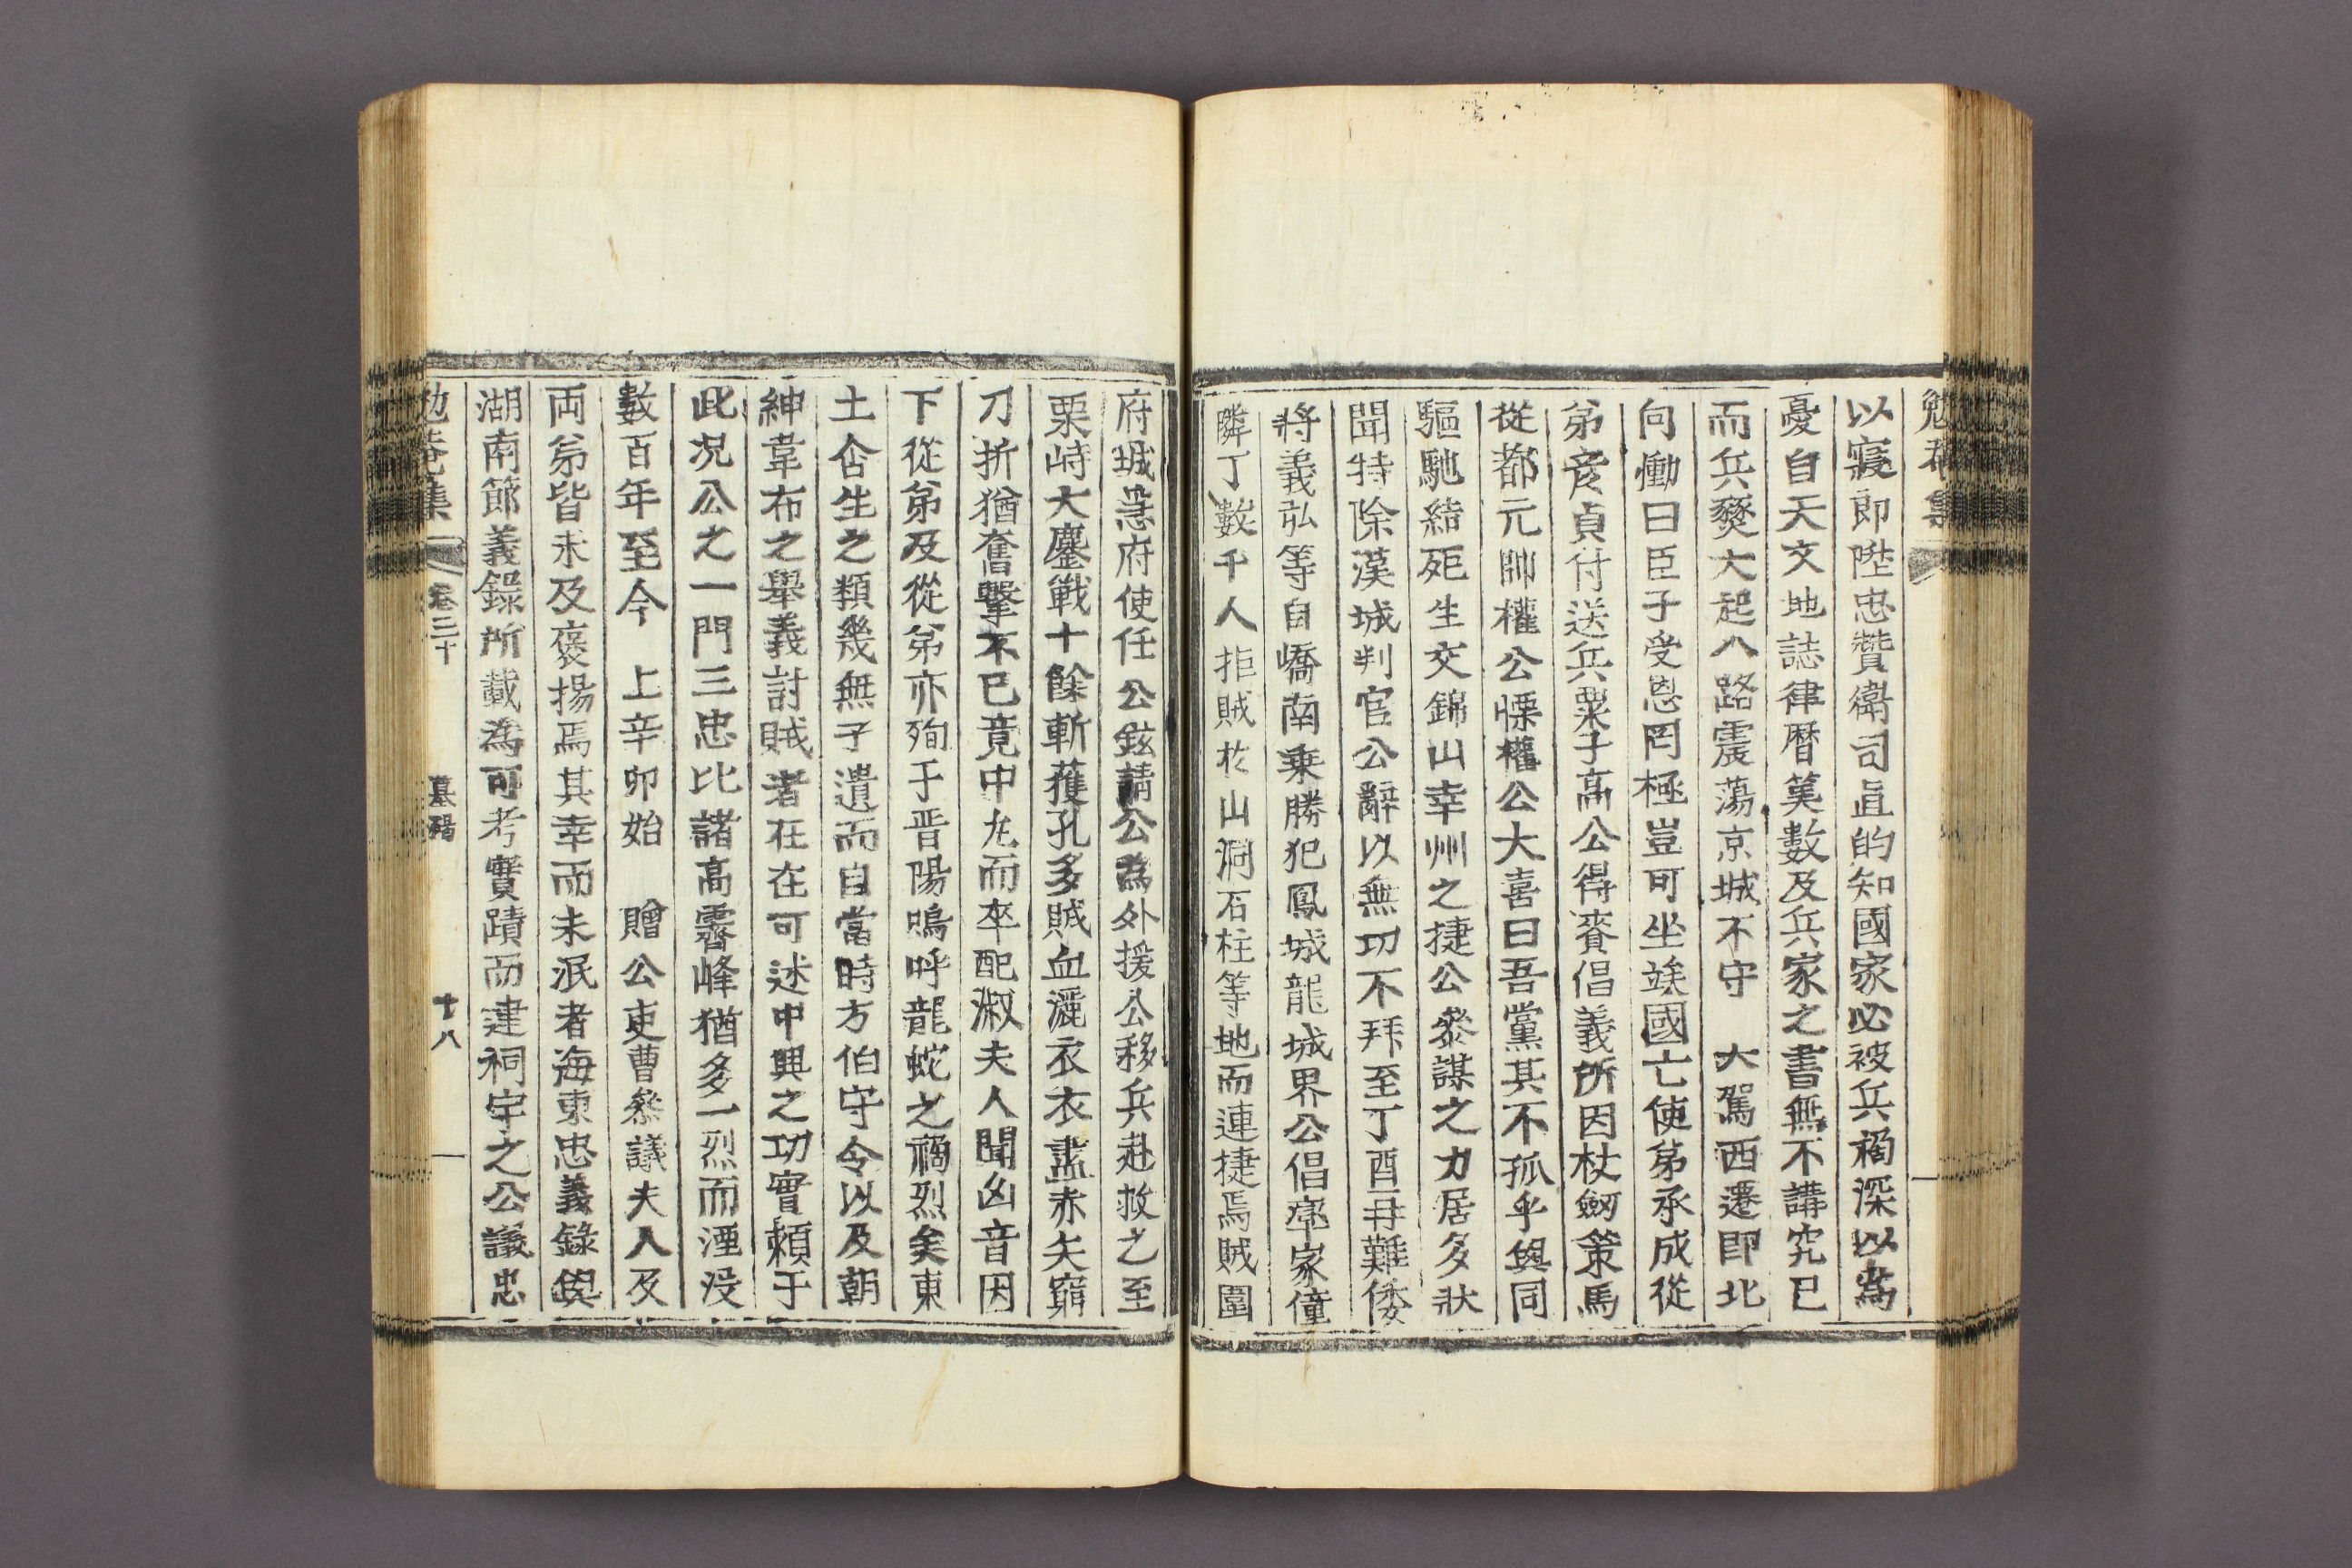 勉菴集
以寢郞陞忠贊衛司直的知國家必被兵禍深以爲
憂自天文地誌律曆筭數及兵家之書無不講究已
而兵燹大起八路震蕩京城不守 大駕西遷卽北
向慟曰臣子受恩罔極豈可坐竢國亡使弟承成從
弟彦貞付送兵粟于高公得賚倡義所因杖劒策馬
從都元帥權公慄權公大喜曰吾黨其不孤乎與同
驅馳結死生交錦山幸州之捷公叅謀之力居多狀
聞特除漢城判官公辭以無功不拜至丁酉再難倭
將義弘等自嶠南乗勝犯鳳城龍城界公倡率家僮
隣丁數千人拒賊於山洞石柱等地而連捷焉賊圍
府城急府使任公鉉請公爲外援公移兵赴救之至
栗峙大鏖戰十餘斬獲孔多賊血灑衣衣盡赤矢窮
刀折猶奮擊不已竟中丸而卒配淑夫人聞凶音因
下從弟及從弟亦殉于晋陽嗚呼龍蛇之禍烈矣東
土含生之類幾無孑遺而自當時方伯守令以及朝
紳韋布之擧義討賊者在在可述中興之功實賴于
此况公之一門三忠比諸高霽峰猶多一烈而湮没
數百年至今 上辛卯始 贈公吏曹叅議夫人及
両弟皆未及褒揚焉其幸而未泯者海東忠義錄與
湖南節義錄所載爲可考實蹟而建祠宇之公議忠
勉菴集 卷三十 墓碣 十八